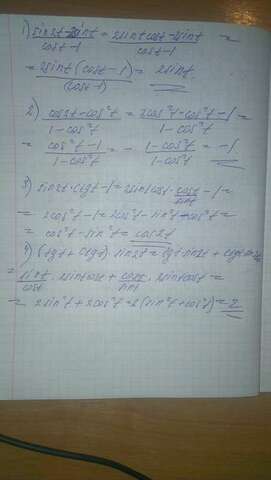 1) (sin2t-2sint)/(cost-1) = (2sintcost-2sint)/(cost-1) =
= 2sint(cost-1)/(cost-1) = 2sint.
2) (cos2t-cos²t)/(1-cos²t) = (2cos²t-cos²t-1)/(1-cos²t) =
= (cos²t-1)/(1-cos²t) = - (1-cos²t)/(1-cos²t) = -1
3) sin2t·ctgt-1=2sintcost·cost/sint-1=
= 2cos²t-1=2cos²t-sin²t-cos²t=
= cos²t-sin²t=cos2t
4) (tgt+ctgt)·sin2t=tgt·sin2t+ctgt·
= sint/cost·2sintcost+cost/sint·2sintcost=
= 2sin²t+2cos²t=2(sin²t+cos²t)=2